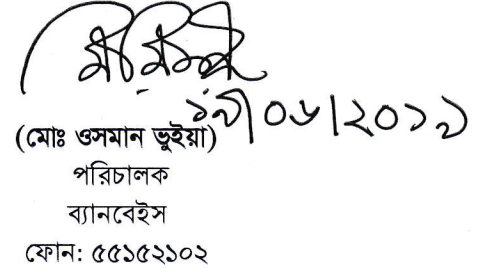 ১৭|০৬|২০১৯
(মোঃ ওসমান ভুইয়া)
পরিচালক
ব্যানবেইস
ফোন: ৫৫১৫২১০২